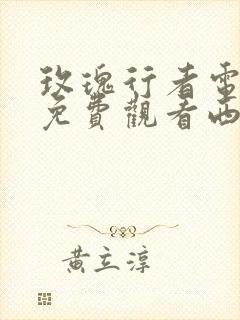 玫瑰行者電
免費觀看西
黃立淳